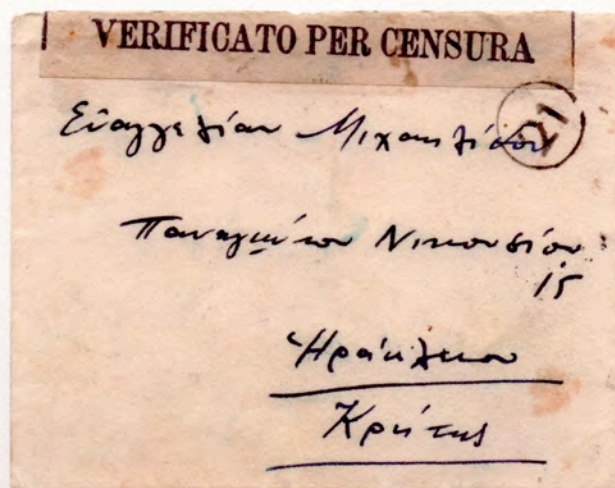 VERIFICATO PER CENSURA
21
Εὐαγγελίαν Μιχαηλίδου
Παναγιώτου Νικουσίου
15
Ἡράκλειον
Κρήτης